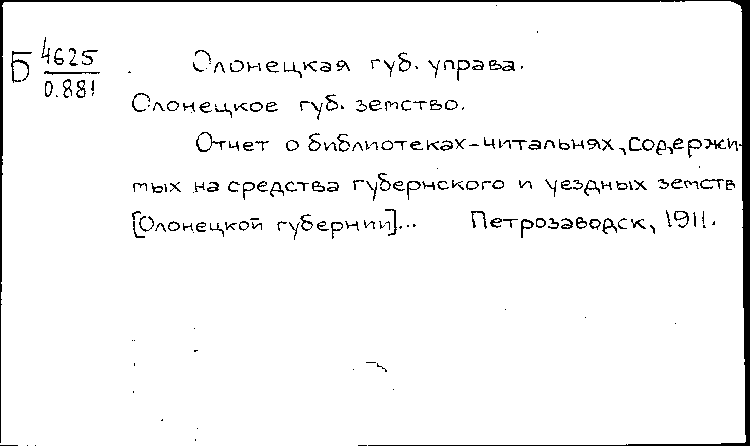 Б 4625
0.881
Олонецкая губ. управа.
Олонецкое губ. земство.
Отчет о библиотеках-читальнях, содержи-
мых на средства губернского и уездных земств
[Олонецкой губернии]... Петрозаводск, 1911.